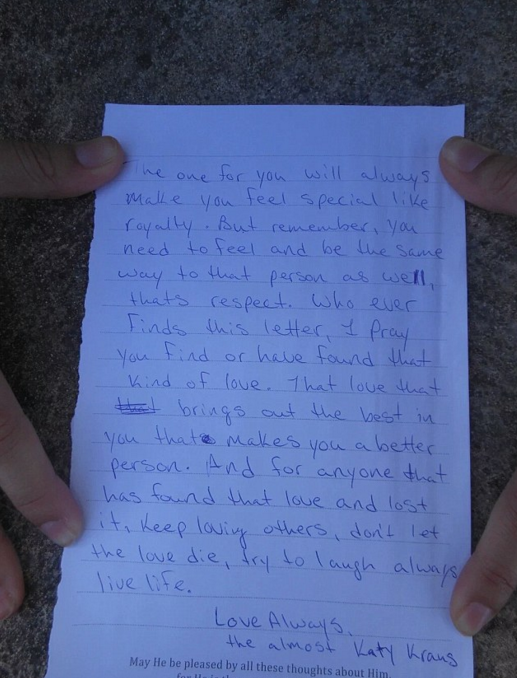 The one for you will always
make you feel special like
royalty. But remember, you
need to feel and be the same
way to that person as well,
thats respect. Who ever
finds this letter, I pray
you find or have found that
kind of love. That love that
brings out the best in
you that makes you a better
person. And for anyone that
has found that love and lost
it, keep loving others, don't let
the love die, try to laugh always
live life.
Love Always,
the almost Katy Kraus
May He be pleased by all these thoughts about Him,